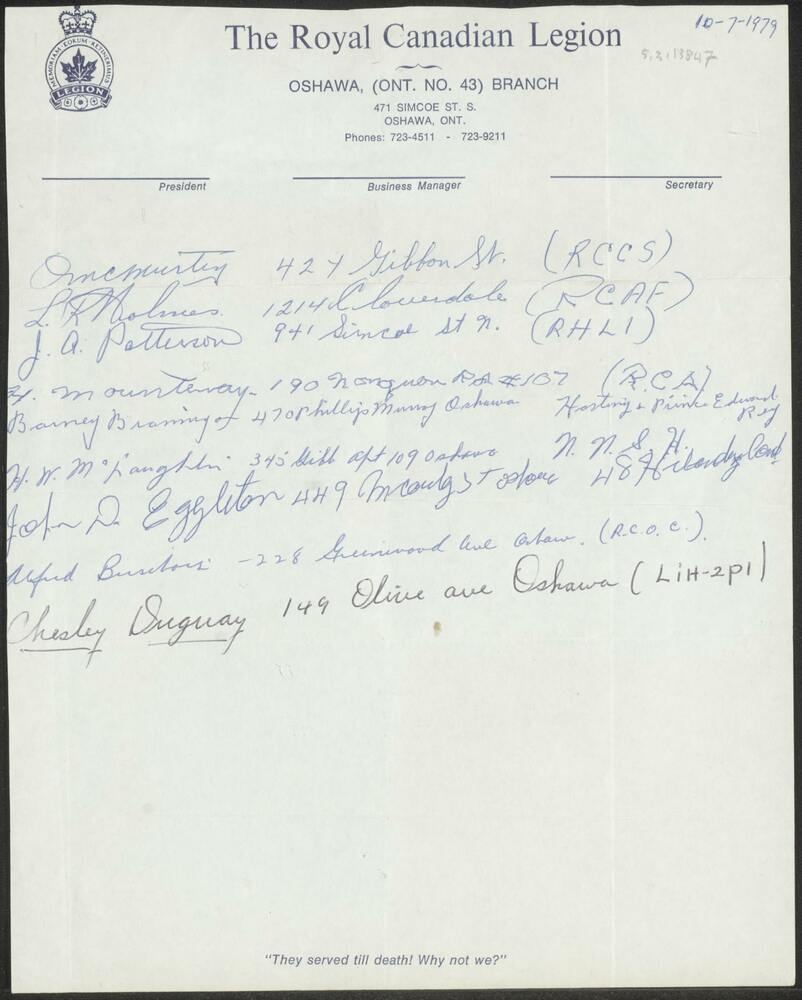 10-7-1979
The Royal Canadian Legion
5.3.13847
MEMORIAM EORUM RETINEBIMUS
LEGION
OSHAWA, (ONT. NO. 43) BRANCH
471 SIMCOE ST. S.
OSHAWA, ONT.
Phones: 723-4511 - 723-9211
President Business Manager Secretary
424 Gibbon St. (RCCS)
L. R. Holmes. 1214 Cloverdale (RCAF)
J. A. Patterson 941 Simcoe St N. (RHLI)
Mounteway - 190 Nonquon Rd #107 (RCA)
Barney 470 Phillip Murray Oshawa Hasting & Prince Edward Reg
H. W. McLaughlin 345 Gibb apt 109 Oshawa N. N. S. H.
John D. Eggleton 449 St 48 Can
Alfred - 228 Greenwood Ave Oshaw. (R.C.O.C.).
Chesley Duguay 149 Olive ave Oshawa (LiH-2pl)
"They served till death! Why not we?"